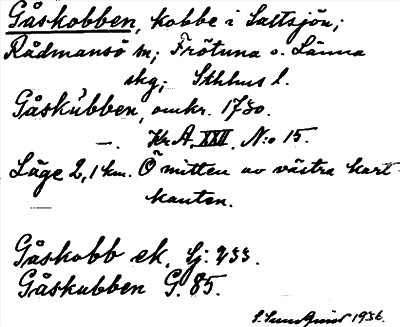 Gåskobben, kobbe i Saltsjön;
Rådmansö sn; Frötuna o. Länna
skg; Sthlms l.
Gåskubben, omkr. 1730.
—. Kr A. XXII. N:o 15.
Läge 2,1 km. Ö mitten av västra kart-
kanten.
Gåskobb ek. Gj: 233.
Gåskubben G. 85.
1936.